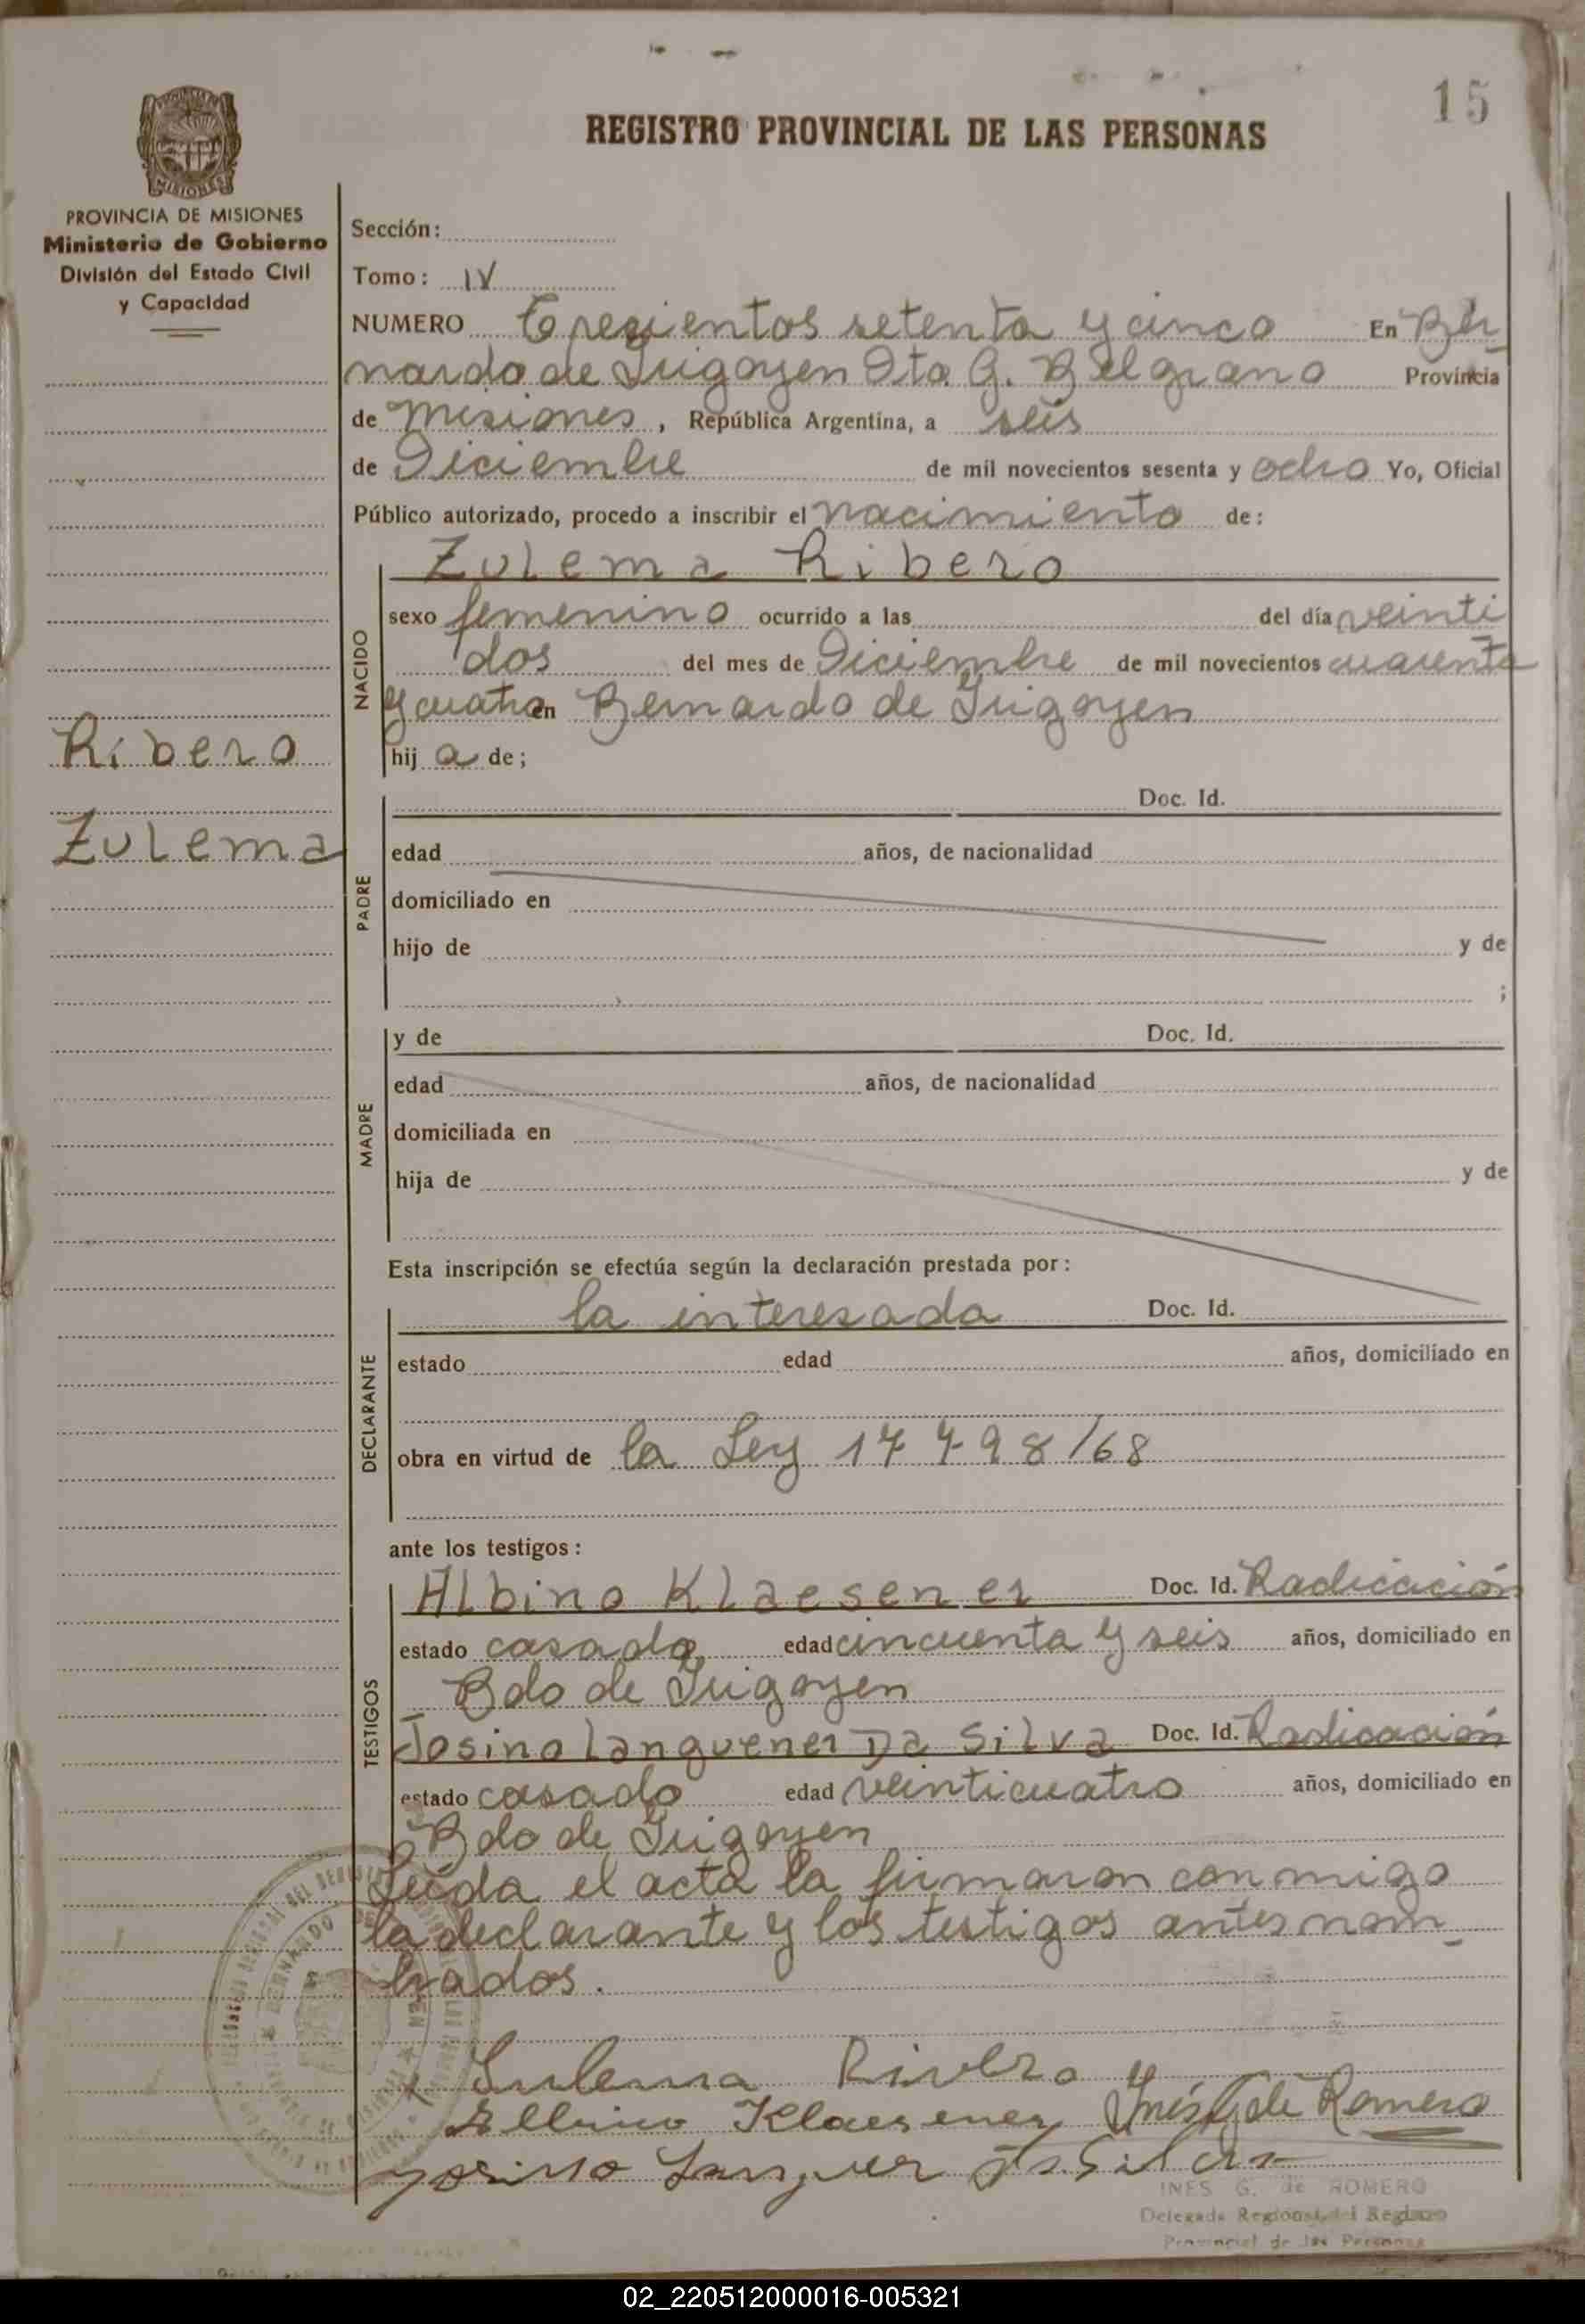 15
REGISTRO PROVINCIAL DE LAS PERSONAS
MISIONES
PROVINCIA DE MISIONES
Ministerio de Gobierno
División del Estado Civil
y Capacidad
Ribero
Zulema
Sección:
Tomo: IV
NUMERO Trecientos setenta y cinco En Ber-
nardo de Irigoyen Dto G. Belgrano Provincia
de Misiones, República Argentina, a seis
de Diciembre de mil novecientos sesenta y ocho Yo, Oficial
Público autorizado, procedo a inscribir el nacimiento de:
NACIDO
Zulema Ribero
sexo femenino ocurrido a las del día veinti
dos del mes de Diciembre de mil novecientos cuarenta
y cuatro en Bernardo de Irigoyen
hij a de;
PADRE
Doc. Id.
edad años, de nacionalidad
domiciliado en
hijo de y de
;
MADRE
y de Doc. Id.
edad años, de nacionalidad
domiciliada en
hija de y de
Esta inscripción se efectúa según la declaración prestada por:
DECLARANTE
la interesada Doc. Id.
estado edad años, domiciliado en
obra en virtud de la Ley 17798/68
ante los testigos:
TESTIGOS
Albino Klaesener Doc. Id. Radicación
estado casado, edad cincuenta y seis años, domiciliado en
Bdo de Irigoyen
Josino Languener Da Silva Doc. Id. Radicación
estado casado edad veinticuatro años, domiciliado en
Bdo de Irigoyen
Leída el acta la firmaron conmigo
la declarante y los testigos antes nom-
brados.
Sulema Rivero
Albino Klaesener Inés G de Romero
Josino Languer Da Silva
INES G. de ROMERO
Delegada Regional del Registro
Provincial de las Personas
02_220512000016-005321